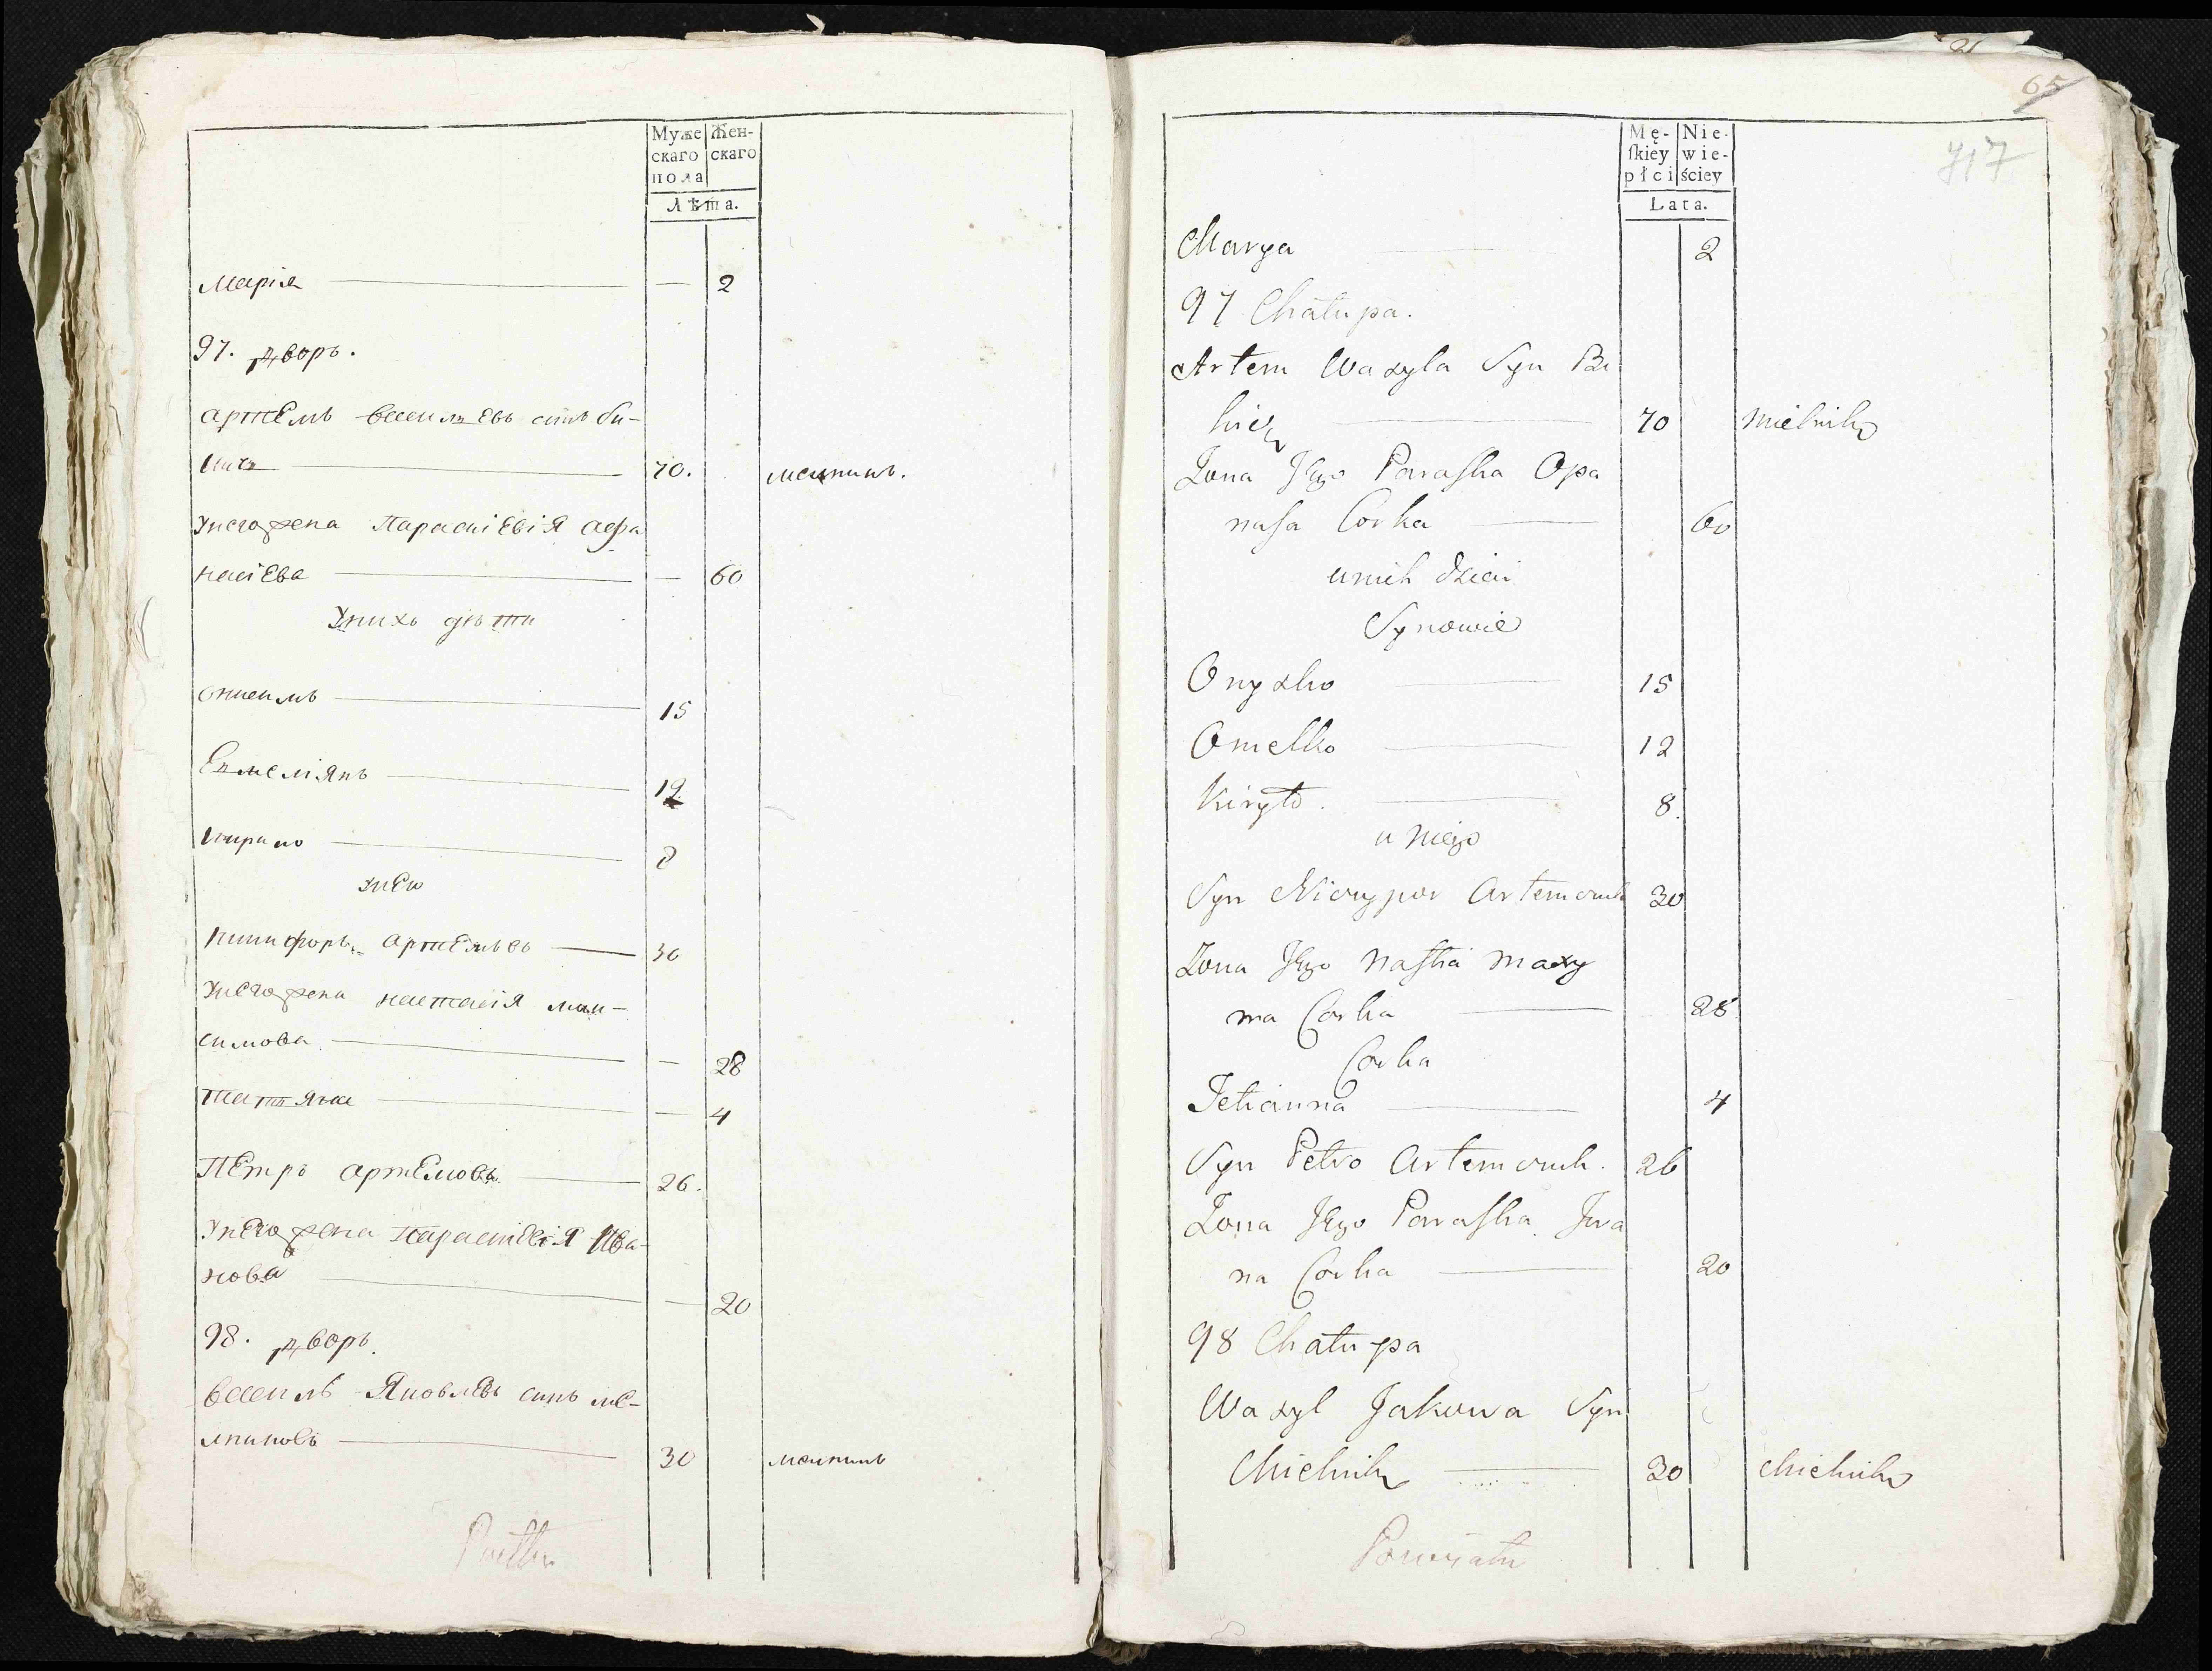 Муже
скаго
пола
Жен-
скаго
Лѣта.
Марія — 2
97. дворъ.
Артемъ Василевъ сынъ би-
кичъ 70.
Унего жена Параскіевія Афа
насіева — 60
Унихъ дѣти
Онисимъ 15
Емеліянъ 12
Кирило 8
унего
Никифоръ Артемьевъ 30
Унего жена Настасія Мак-
симова — 28
Татяна — 4
Петръ Артемовъ 26.
Унего жена Параскіевія Ива-
нова — 20
98. дворъ.
Василь Яковлевъ сынъ ме-
лниковъ 30
65
717
Mę-
ſkiey
płci
Nie-
wie-
ściey
Lata.
Marya 2
97 Chałupa.
Artem Wasyla Syn Bi
kicz 70 Mielnik
Zona Jego Paraska Opa
nasa Corka 60
unich dzieci
Synowie
Onysko 15
Omelko 12
Kiryło. 8.
u niego
Syn Niczypor Artemouik 30
Zona Jego Nastia Maxy
ma Corka 28
Corka
Tetianna 4
Syn Petro Artemouik. 26
Zona Jego Paraska Iwa
na Corka 20
98 Chałupa
Wasyl Jakowa Syn
Mielnik 30 Mielnik
Powiatu